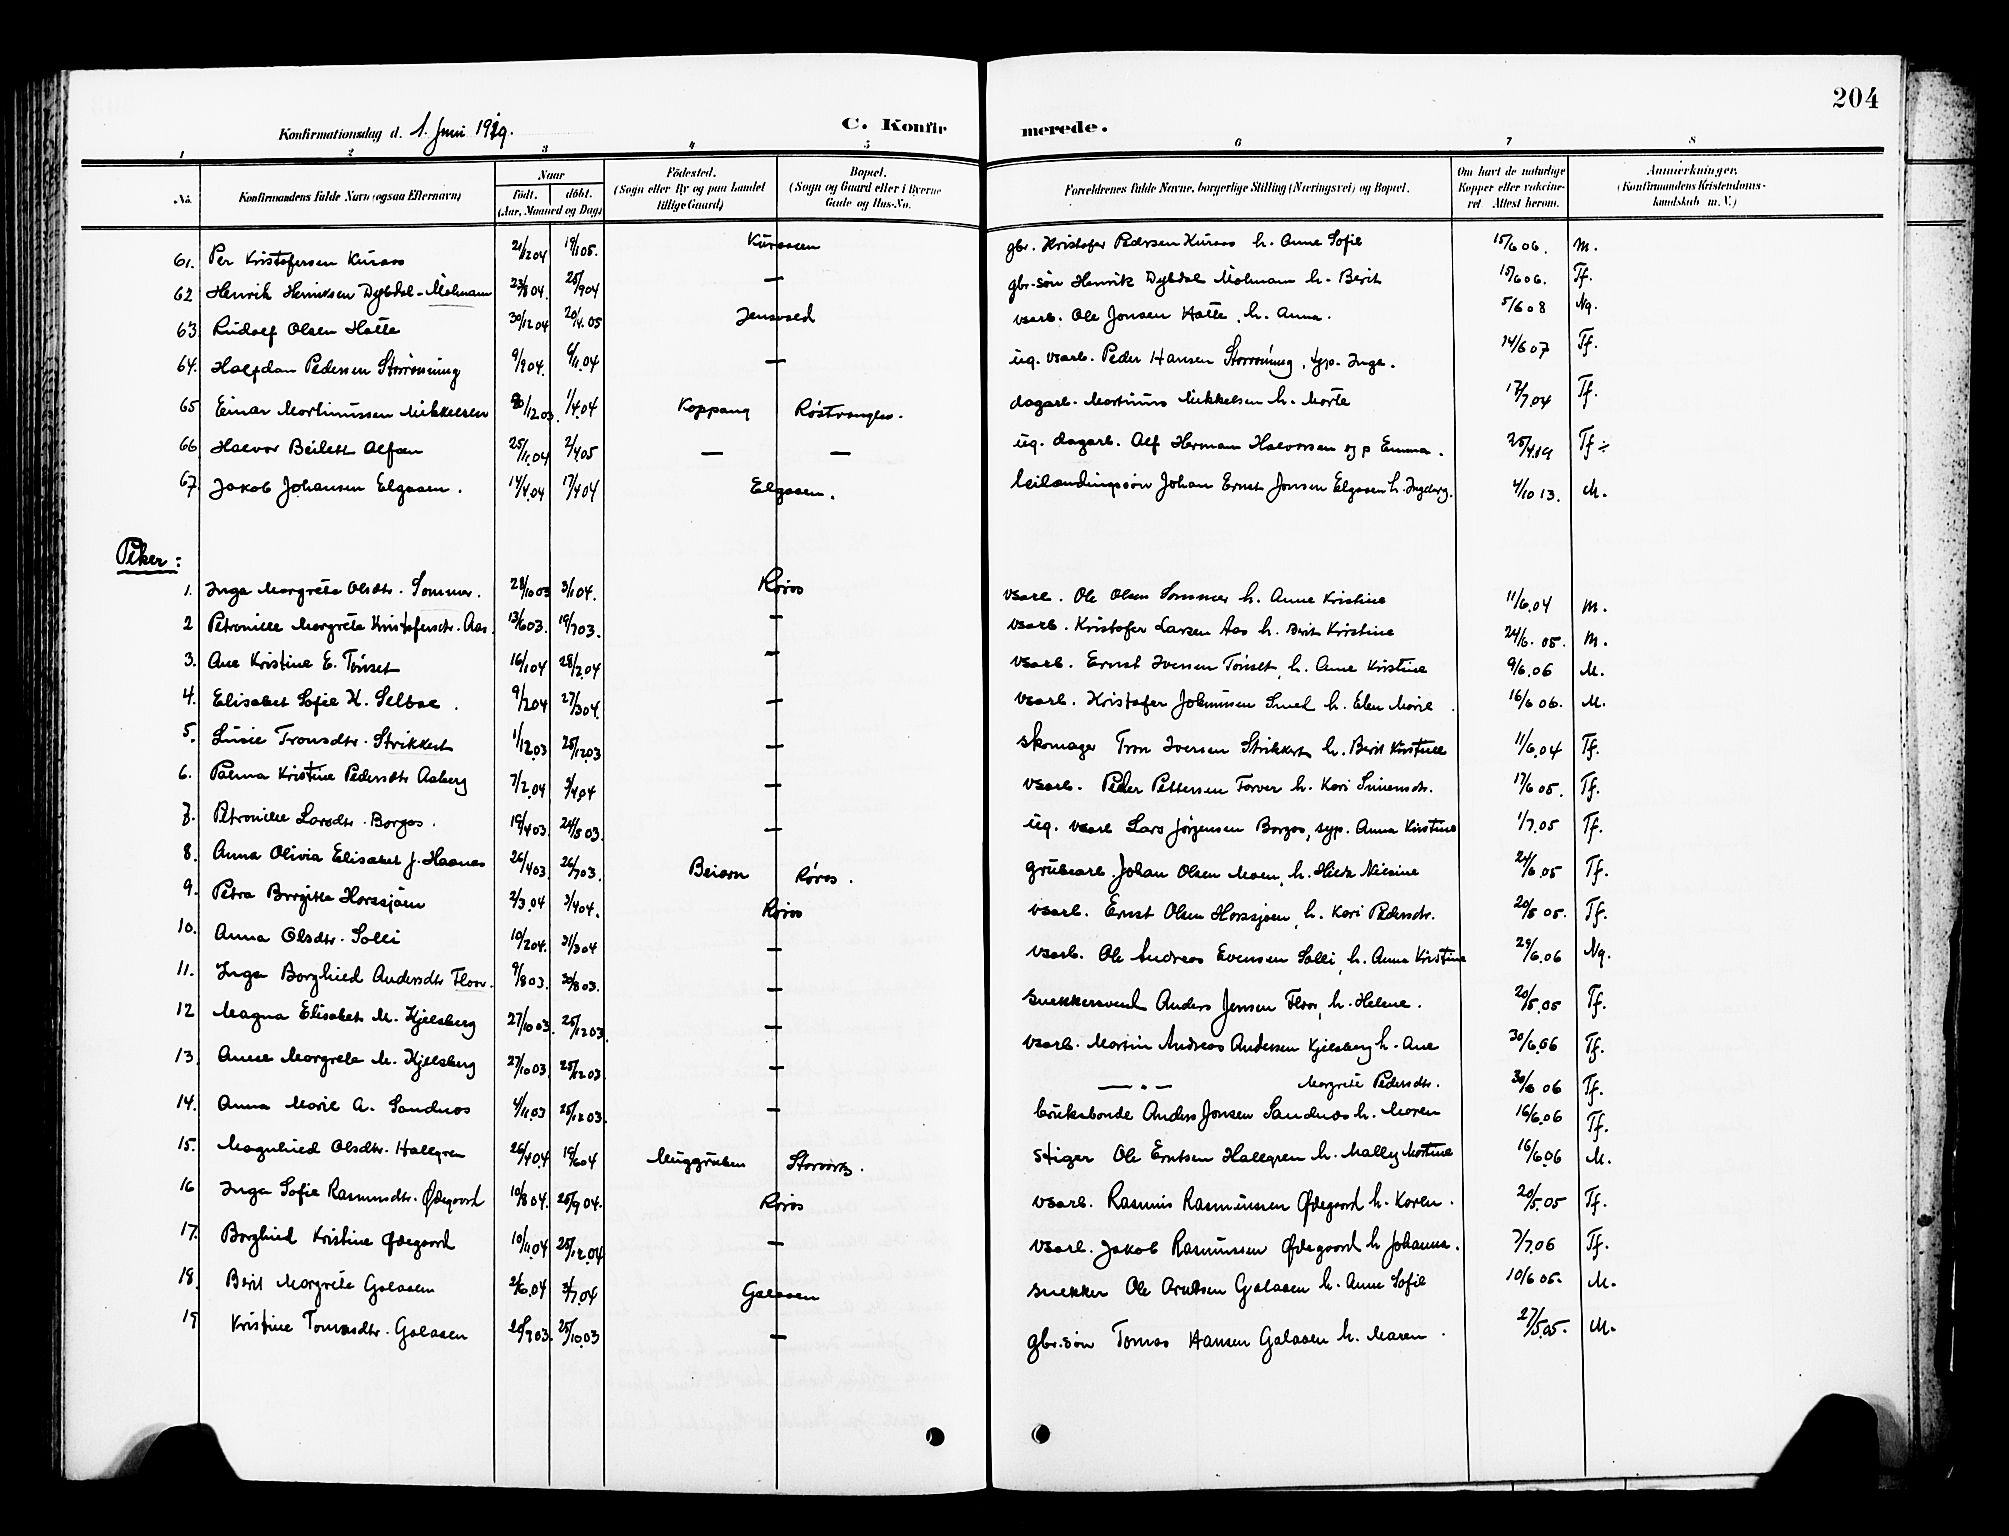 204
Konfirmationsdag d. 1. Juni 1919.
C. Konfirmerede.
1 2 3 4 5 6 7 8
No. Konfirmandens fulde Navn (ogsaa Efternavn) Naar Født. døbt. (Aar, Maaned og Dag) Fødested. (Sogn eller By og paa Landet tillige Gaard) Bopæl. (Sogn og Gaard eller i Byerne Gade og Hus-No. Forældrenes fulde Navne, borgerlige Stilling (Næringsvei) og Bopæl. Om havt de naturlige Kopper eller vakcineret Attest herom. Anmerkninger. (Konfirmandens Kristendomskundskab m. V.)
61. Per Kristofersen Kuraas 21/12 04 19/1 05. Kuraasen gbr. Kristofer Pedersen Kuraas h. Anne Sofie 15/6 06. M.
62 Henrik Henriksen Dybdal-Molmann 23/8 04. 25/9 04 — gbr.søn Henrik Dybdal Molmann h. Berit 15/6 06. Tf.
63 Rudolf Olsen Hatte 30/12 04 20/4. 05 Jensvold vsarb. Ole Jonsen Hatte, h. Anna. 5/6 08 Ng.
64. Halfdan Pedersen Storrønning 9/9 04. 6/11. 04 — ug. vsarb. Peder Hansen Storrønning, Inga. 14/6 07 Tf.
65 Einar Martinussen Mikkelsen /12 03. 1/4. 04 Koppang Røstvangen. dagarb. Martinus Mikkelsen h. Marte 17/7 04 Tf.
66 Halvor Alfsen 25/11. 04 2/4 05 — — ug. dagarb. Alf Herman Halvorsen og p Emma. 25/4. 19 Tf ÷
67 Jakob Johansen Elgaaen. 14/4. 04 17/4 04 Elgaaen. leilændingssøn Johan Ernst Jonsen Elgaaen h. Ingeborg. 4/10 13. M.
Piker:
1. Inga Margrete Olsdtr. Sommer. 28/10 03 3/1 04. Røros vsarb. Ole Olsen Sommer h. Anne Kristine 11/6. 04 M.
2 Petronille Margrete Kristofersdtr. Aas. 13/6 03. 19/7 03. — vsarb. Kristofer Larsen Aas h. Berit Kristine 24/6. 05. M.
3. Ane Kristine E. Tønset 16/1 04 28/2. 04 — vsarb. Ernst Iversen Tønset, h. Anne Kristine 9/6. 06 M.
4. Elisabet Sofie K. Selboe. 9/2 04 27/3 04. — vsarb. Kristofer Johnnisen h. Elen Marie. 16/6 06. M.
5. Lusie Tronsdtr. Strikkert 1/12. 03 25/12. 03 — Skomager Tron Iversen Strikkert h. Berit Kirstine 11/6. 04 Tf.
6. Palma Kristine Pedersdtr Aasberg 7/2. 04 3/4. 04 — vsarb. Peder Pettersen Forver h. Kari Simensdtr. 17/6 05. Tf.
7. Petronille Larsdtr. Borgos. 19/4 03. 24/5 03. — ug. vsarb Lars Jørgensen Borgos, Anna Kirstine 1/7. 05 Tf.
8. Anna Olivia Elisabet J. Haanes 26/4 03. 26/7 03. Beiarn Røros. grubearb. Johan Olsen Moen, h. Nilsine 24/6. 05 Tf.
9. Petra Birgitte Horssjøen 2/3. 04 3/4 04. Røros vsarb. Ernst Olsen Horssjøen, h. Kari Pedersdtr. 20/5 05. Tf.
10. Anna Olsdtr. Solli 10/2 04. 31/3 04 — vsarb. Ole Andreas Evensen Solli, h. Anna Kristine 29/6. 06 Ng.
11. Inga Borghied Andersdtr Floor. 9/8 03. 30/8 03. — snekkersvend Anders Jensen Floor, h. Helene. 20/5. 05 Tf.
12 Magna Elisabet M. Kjelsberg 27/10 03. 25/12 03. — vsarb. Martin Andreas Andersen Kjelsberg h. Ane 30/6. 06 Tf.
13. Anne Margrete M. Kjelsberg 27/10 03. 25/12 03. — — " — Margrete Pedersdtr. 30/6 06 Tf.
14. Anna Marie A. Sandnes 4/11. 03 25/12 03. — bruksbonde Anders Jonsen Sandnes h. Maren 16/6. 06 Tf.
15. Magnhied Olsdtr. Hallgren 26/4 04 19/6 04 Muggruben Storvarts. Stiger Ole Erntsen Hallgren h. Mally Martine 16/6. 06 M.
16 Inga Sofie Rasmusdtr. Ødegaard 10/8 04. 25/9 04. Røros vsarb. Rasmus Rasmussen Ødegaard h. Karen. 20/5. 05 Tf.
17. Borghied Kristine Ødegaard 10/11. 04 25/12. 04 — vsarb. Jakob Rasmussen Ødegaard h Johanna. 7/7. 06 Tf.
18. Berit Margrete Galaaen 2/6. 04 3/7. 04 Galaaen snekker Ole Arntsen Galaaen h. Anne Sofie 10/6 05. M.
19 Kristine Tomasdtr. Galaaen 20/9 03. 25/10. 03 — gbr.søn Tomas Hansen Galaaen h. Maren. 27/5. 05. M.